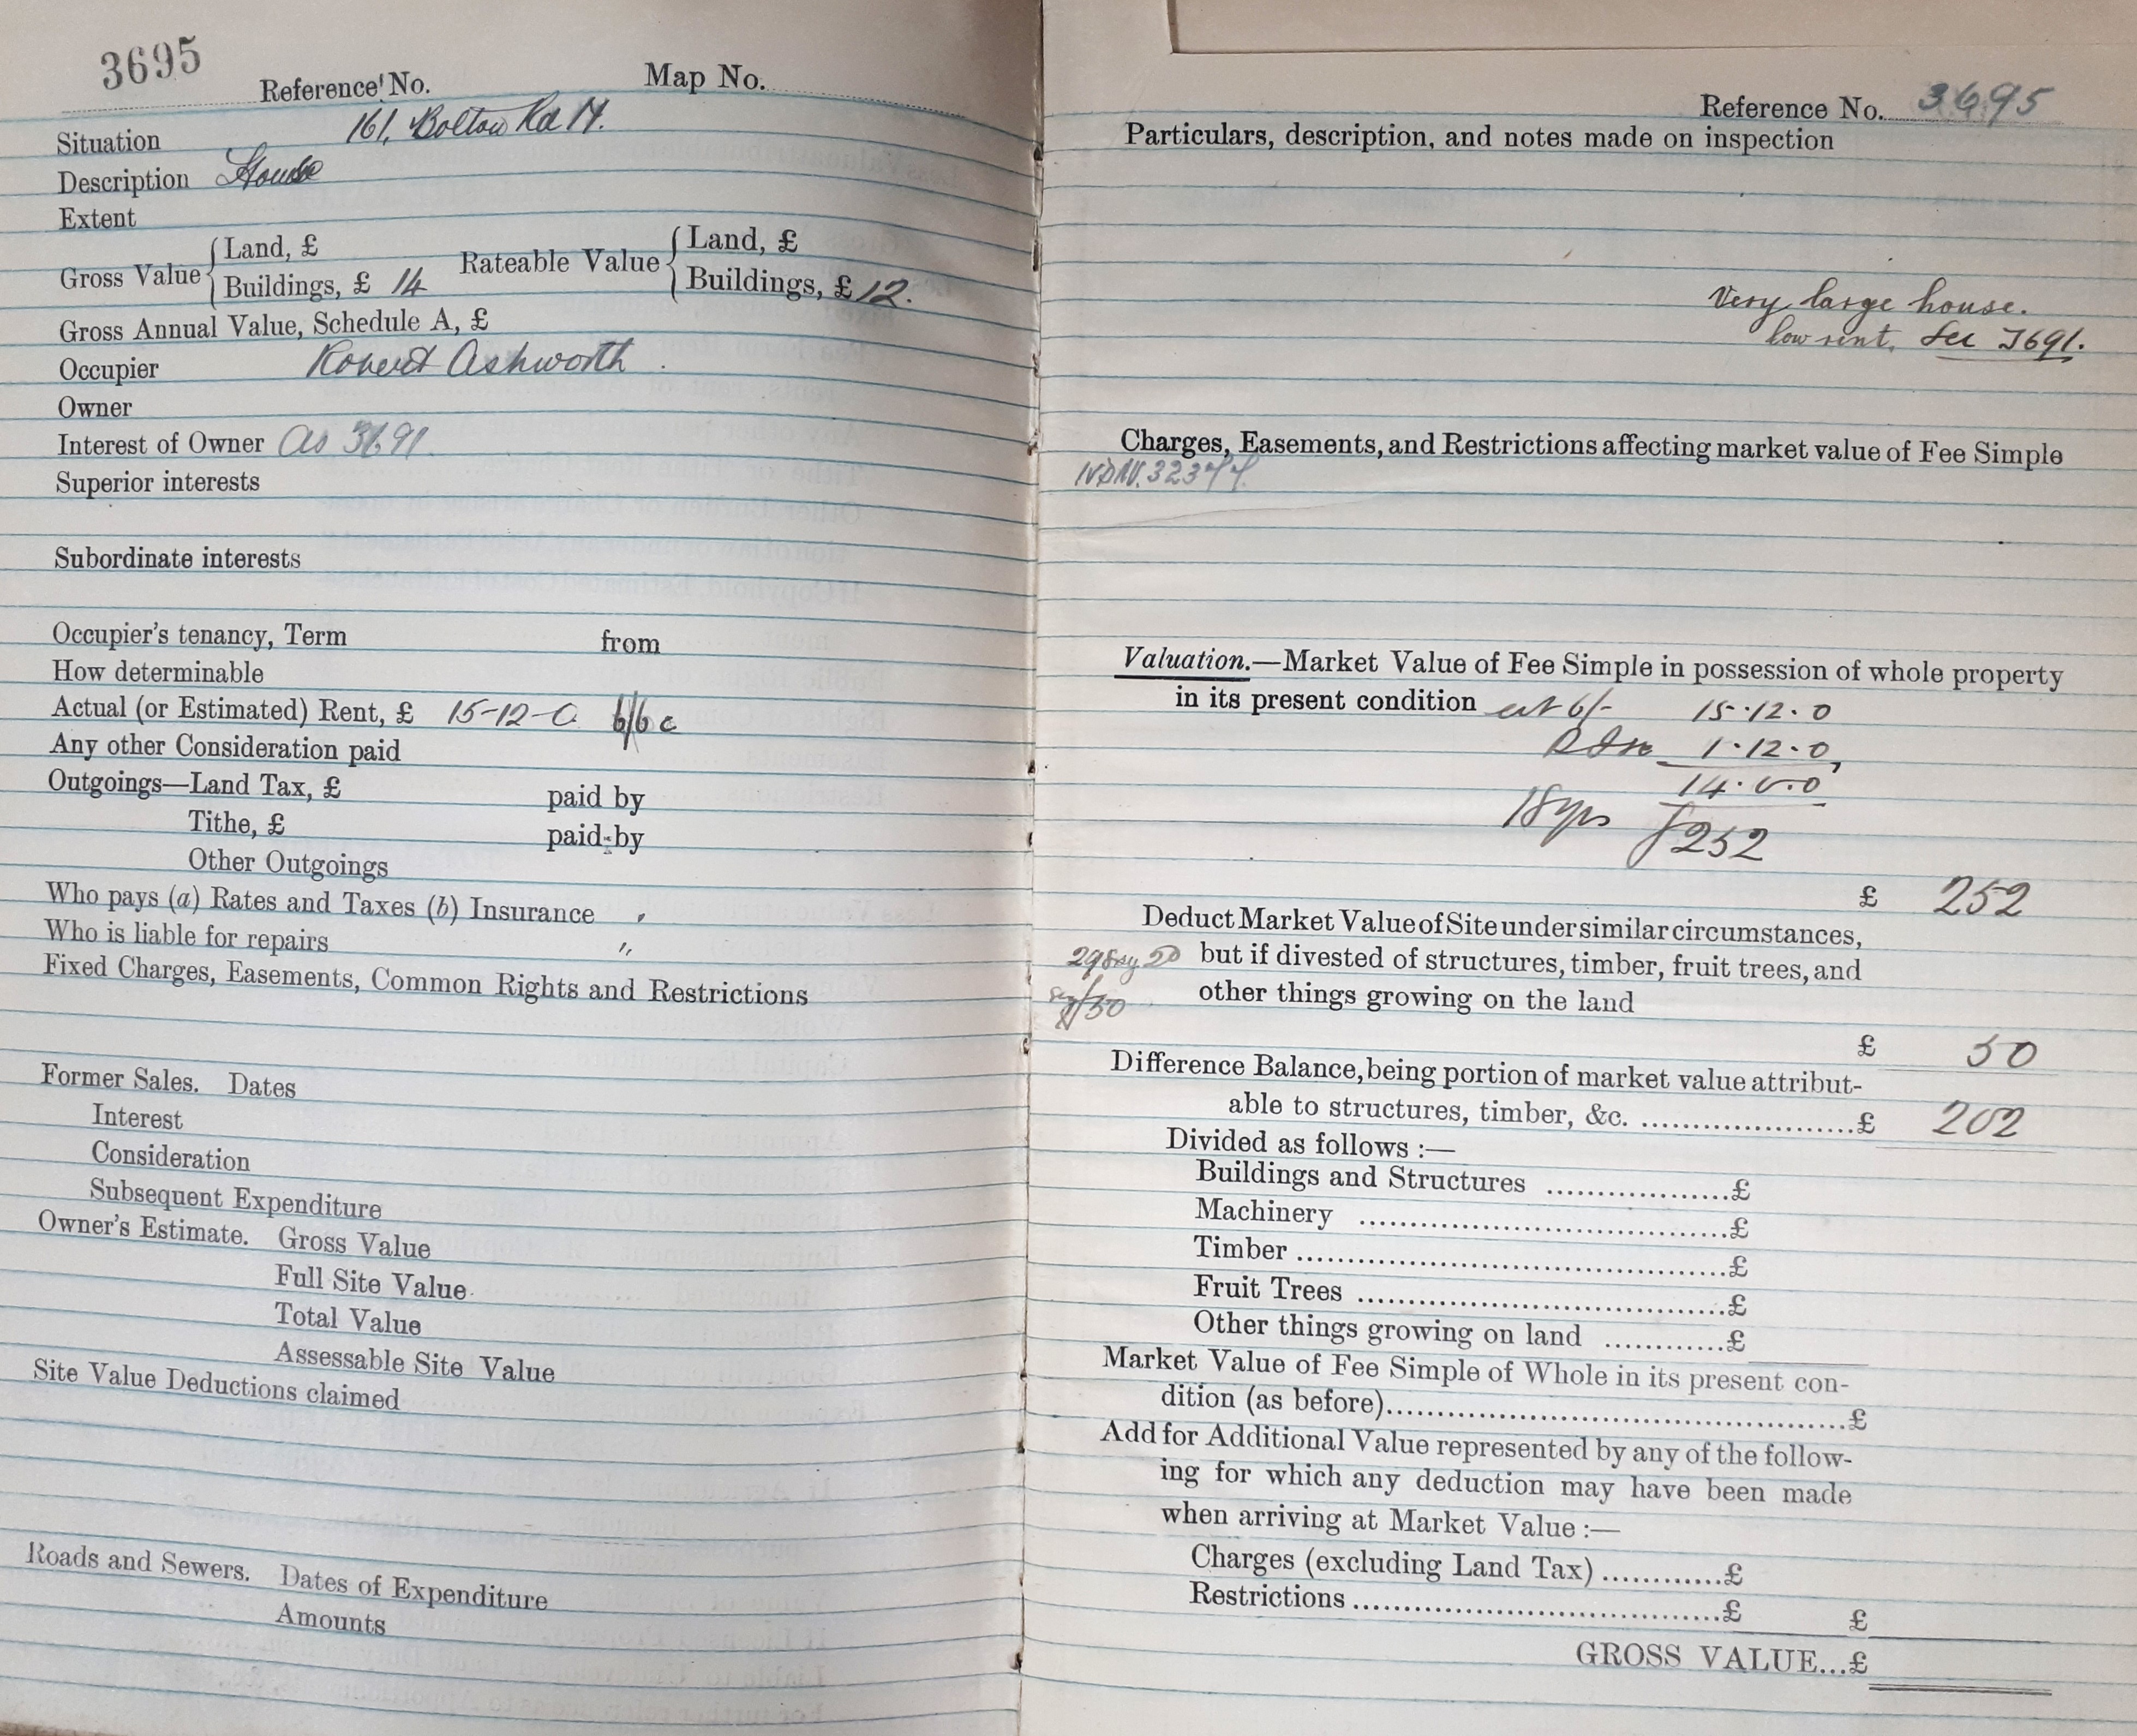 3695
Reference No. Map No.
Situation 161, Bolton Rd N.
Description House
Extent
Gross Value { Land, £ Rateable Value { Land, £
Buildings, £ 14 Buildings, £ 12.
Gross Annual Value, Schedule A, £
Occupier Robert Ashworth
Owner
Interest of Owner As 3691.
Superior interests
Subordinate interests
Occupier's tenancy, Term from
How determinable
Actual (or Estimated) Rent, £ 15-12-0
Any other Consideration paid
Outgoings—Land Tax, £ paid by
Tithe, £ paid by
Other Outgoings
Who pays (a) Rates and Taxes (b) Insurance
Who is liable for repairs "
Fixed Charges, Easements, Common Rights and Restrictions
Former Sales. Dates
Interest
Consideration
Subsequent Expenditure
Owner's Estimate. Gross Value
Full Site Value
Total Value
Assessable Site Value
Site Value Deductions claimed
Roads and Sewers. Dates of Expenditure
Amounts
Reference No. 3695
Particulars, description, and notes made on inspection
Very large house.
low rent. See 3691.
Charges, Easements, and Restrictions affecting market value of Fee Simple
Valuation.—Market Value of Fee Simple in possession of whole property
in its present condition at 6/- 15.12.0
1.12.0
14.0.0
18 yrs £252
£ 252
Deduct Market Value of Site under similar circumstances,
but if divested of structures, timber, fruit trees, and
other things growing on the land
£ 50
Difference Balance, being portion of market value attribut-
able to structures, timber, &c. ....................£ 202
Divided as follows :—
Buildings and Structures ..................£
Machinery ....................................£
Timber ..........................................£
Fruit Trees ....................................£
Other things growing on land ............£
Market Value of Fee Simple of Whole in its present con-
dition (as before)..............................................£
Add for Additional Value represented by any of the follow-
ing for which any deduction may have been made
when arriving at Market Value :—
Charges (excluding Land Tax) ............£
Restrictions ....................................£ £
GROSS VALUE...£